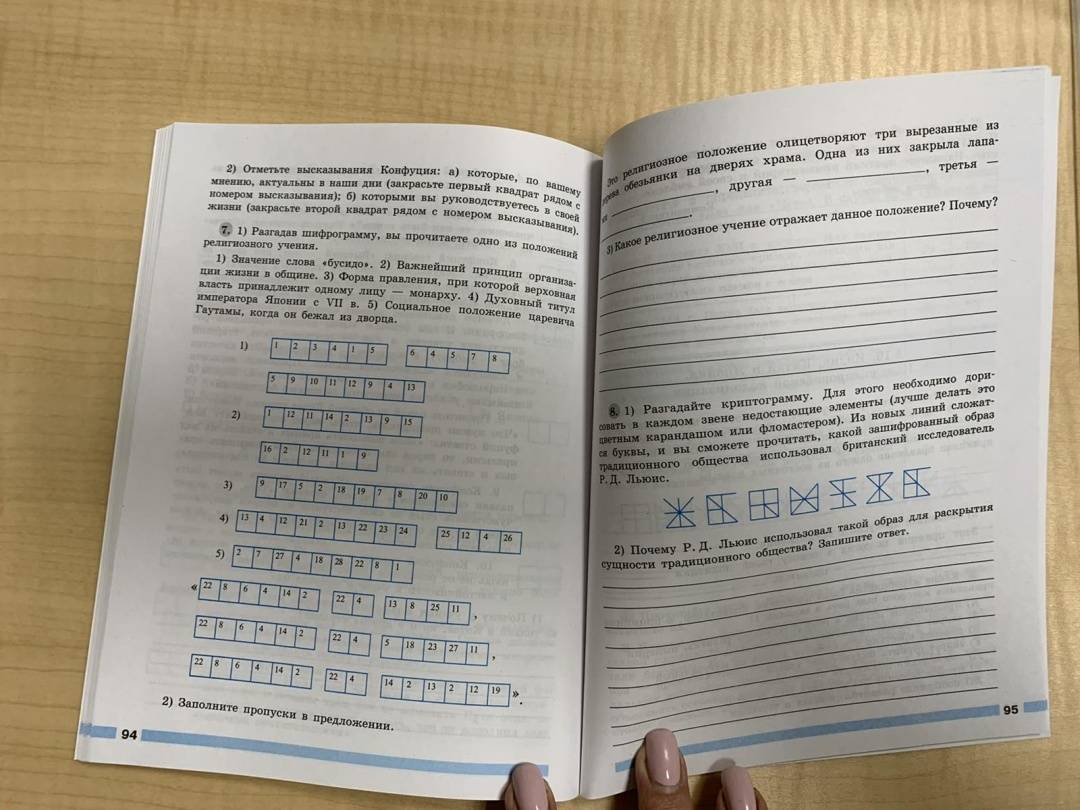 2) Отметьте высказывания Конфуция: а) которые, по вашему
мнению, актуальны в наши дни (закрасьте первый квадрат рядом с
номером высказывания); б) которыми вы руководствуетесь в своей
жизни (закрасьте второй квадрат рядом с номером высказывания).
7. 1) Разгадав шифрограмму, вы прочитаете одно из положений
религиозного учения.
1) Значение слова «бусидо». 2) Важнейший принцип организа-
ции жизни в общине. 3) Форма правления, при которой верховная
власть принадлежит одному лицу — монарху. 4) Духовный титул
императора Японии с VII в. 5) Социальное положение царевича
Гаутамы, когда он бежал из дворца.
1) 1 2 3 4 1 5 6 4 5 7 8
5 9 10 11 12 9 4 13
2) 1 12 11 14 2 13 9 15
16 2 12 11 1 9
3) 9 17 5 2 18 19 7 8 20 10
4) 13 4 12 21 2 13 22 23 24 25 12 4 26
5) 2 7 27 4 18 28 22 8 1
« 22 8 6 4 14 2 22 4 13 8 25 11 ,
22 8 6 4 14 2 22 4 5 18 23 27 11 ,
22 8 6 4 14 2 22 4 14 2 13 2 12 19 ».
2) Заполните пропуски в предложении.
94
Это религиозное положение олицетворяют три вырезанные из
обезьянки на дверях храма. Одна из них закрыла лапа-
, другая — , третья —
.
3) Какое религиозное учение отражает данное положение? Почему?
8. 1) Разгадайте криптограмму. Для этого необходимо дори-
совать в каждом звене недостающие элементы (лучше делать это
цветным карандашом или фломастером). Из новых линий сложат-
ся буквы, и вы сможете прочитать, какой зашифрованный образ
традиционного общества использовал британский исследователь
Р. Д. Льюис.
2) Почему Р. Д. Льюис использовал такой образ для раскрытия
сущности традиционного общества? Запишите ответ.
95